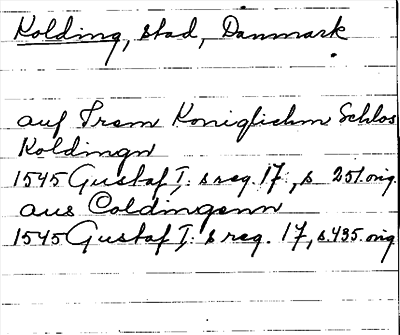 Kolding, stad, Danmark
auf Irem Königlichm Schlos
Koldingn
1545 Gustaf I: s reg. 17, s 251. orig.
aus Coldingenn
1545 Gustaf I: s reg. 17, s. 435. orig